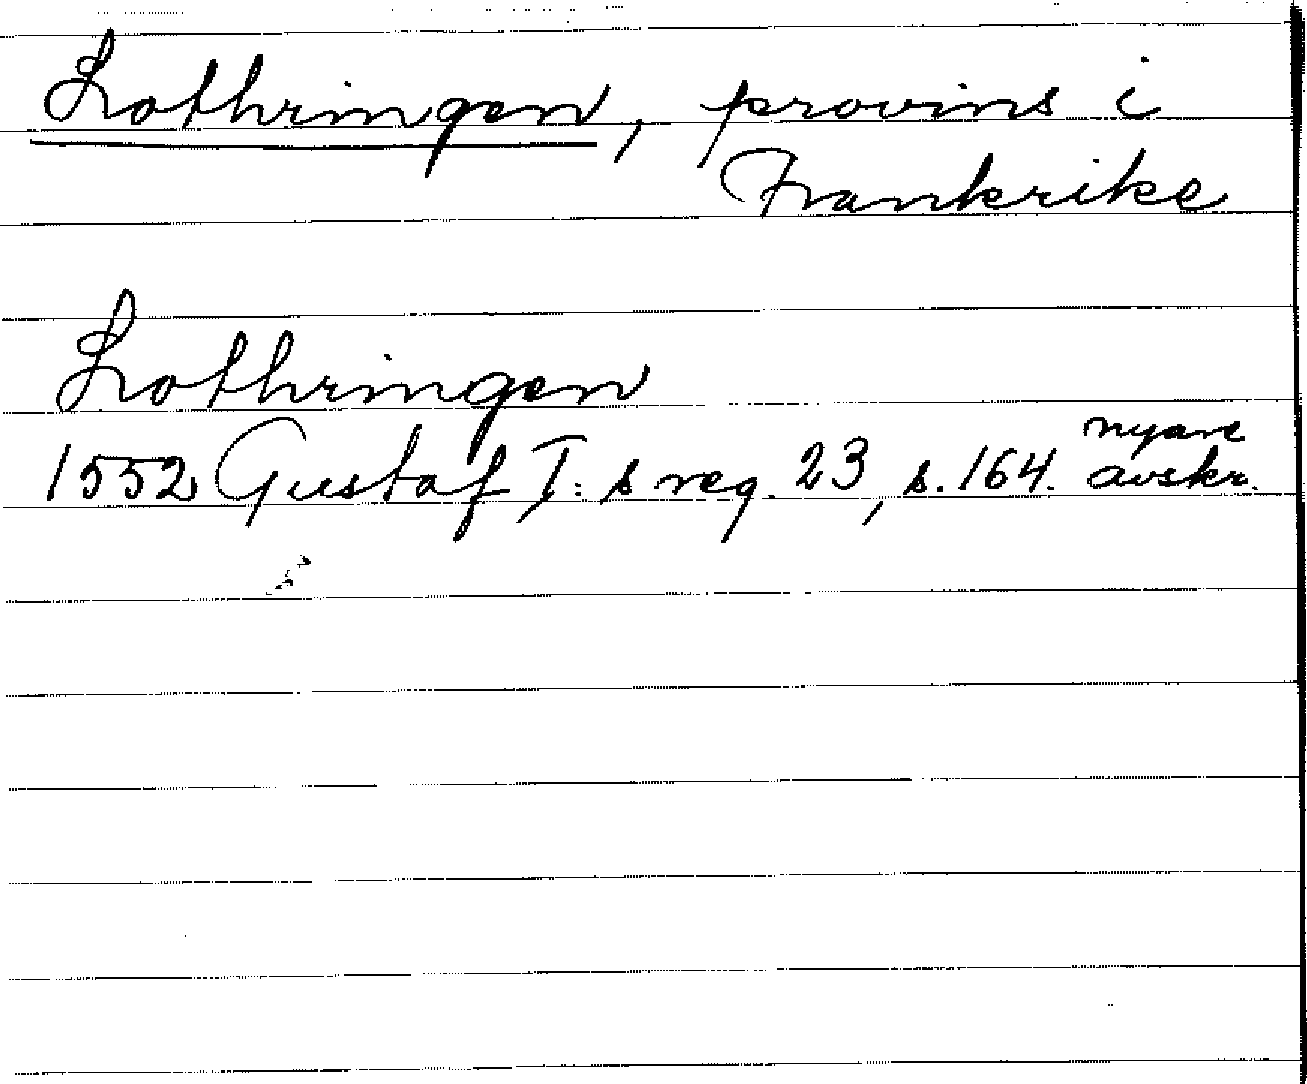 Lothringen, provins i
Frankrike
Lothringen
1552 Gustaf I: s reg. 23, s. 164. nyare avskr.